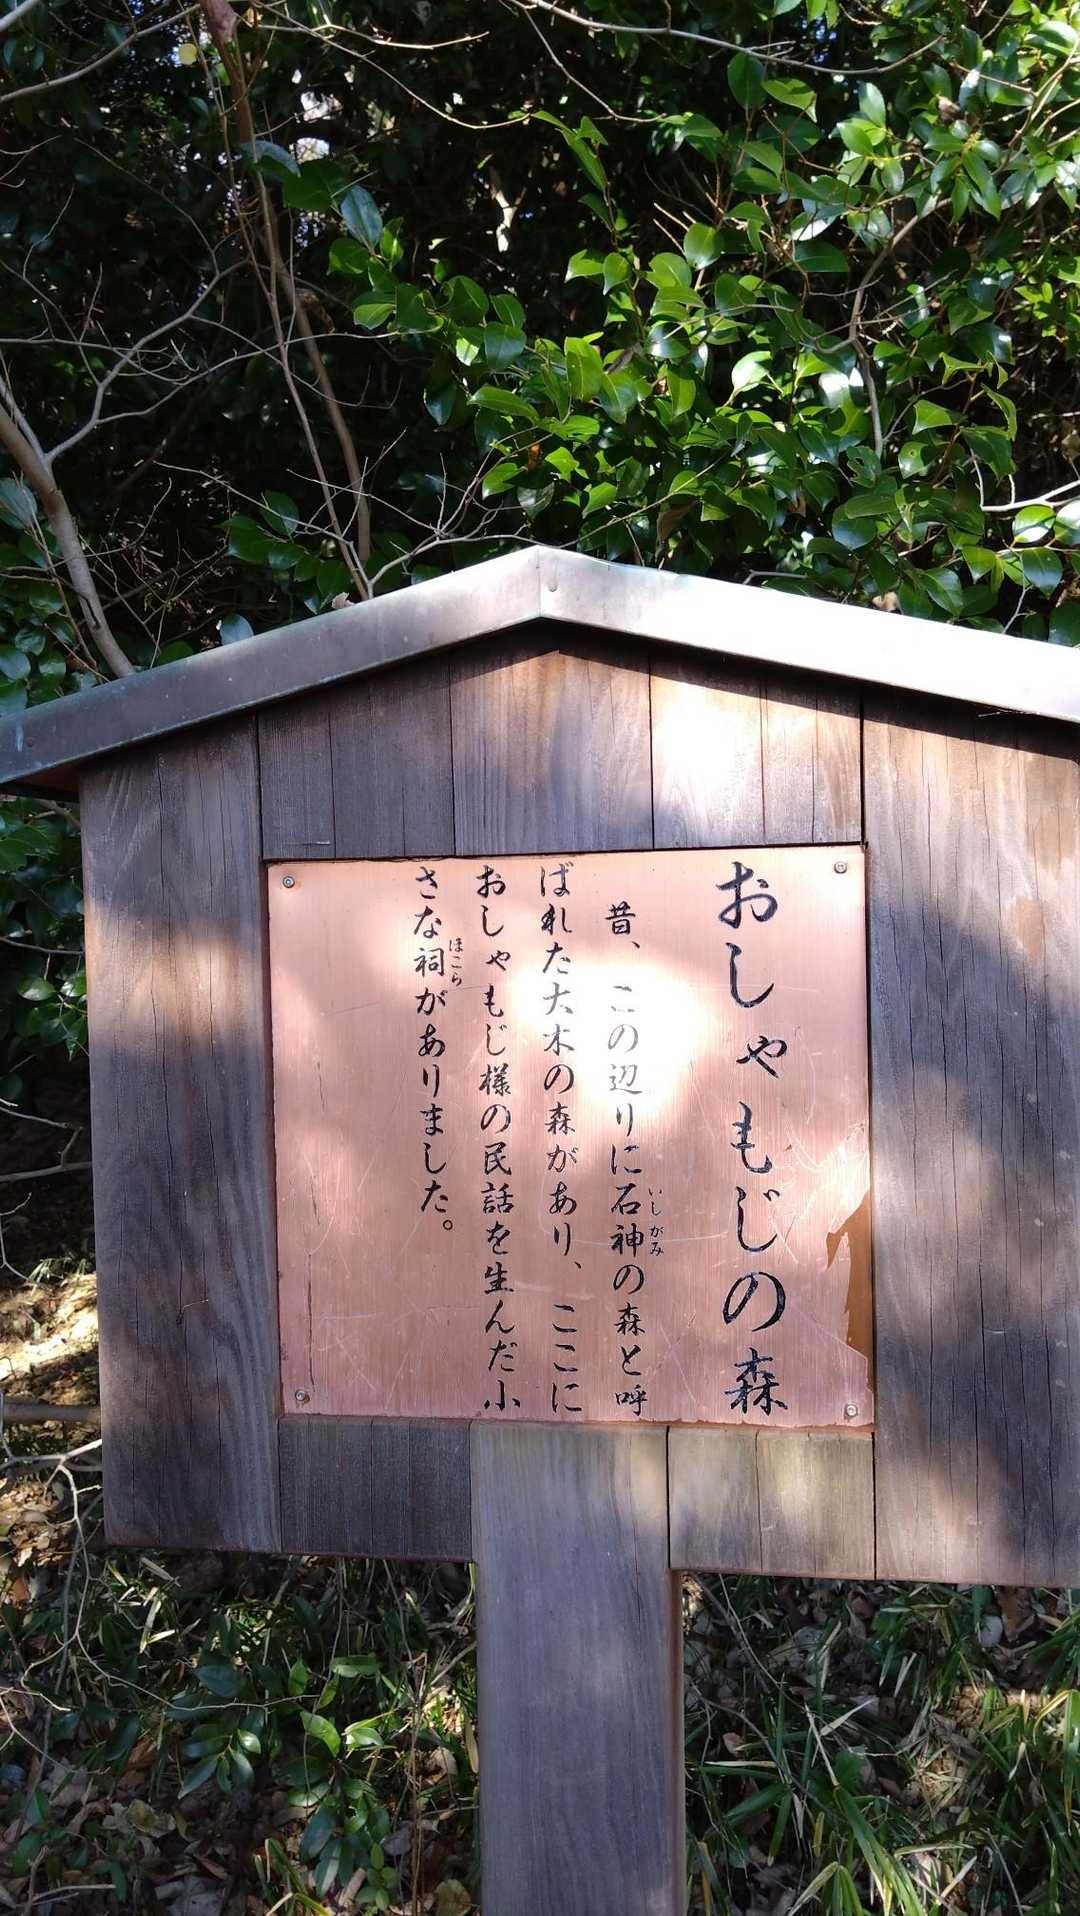 おしゃもじの森
昔、この辺りに石神の森と呼
いしがみ
ばれた大木の森があり、ここに
おしゃもじ様の民話を生んだ小
さな祠がありました。
ほこら